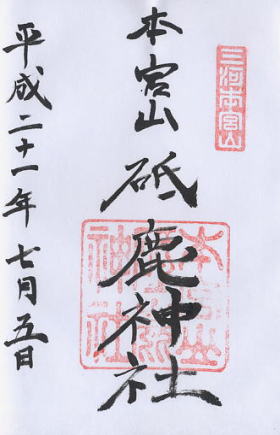 三河本宮山
本宮山
砥鹿神社
平成二十一年七月五日